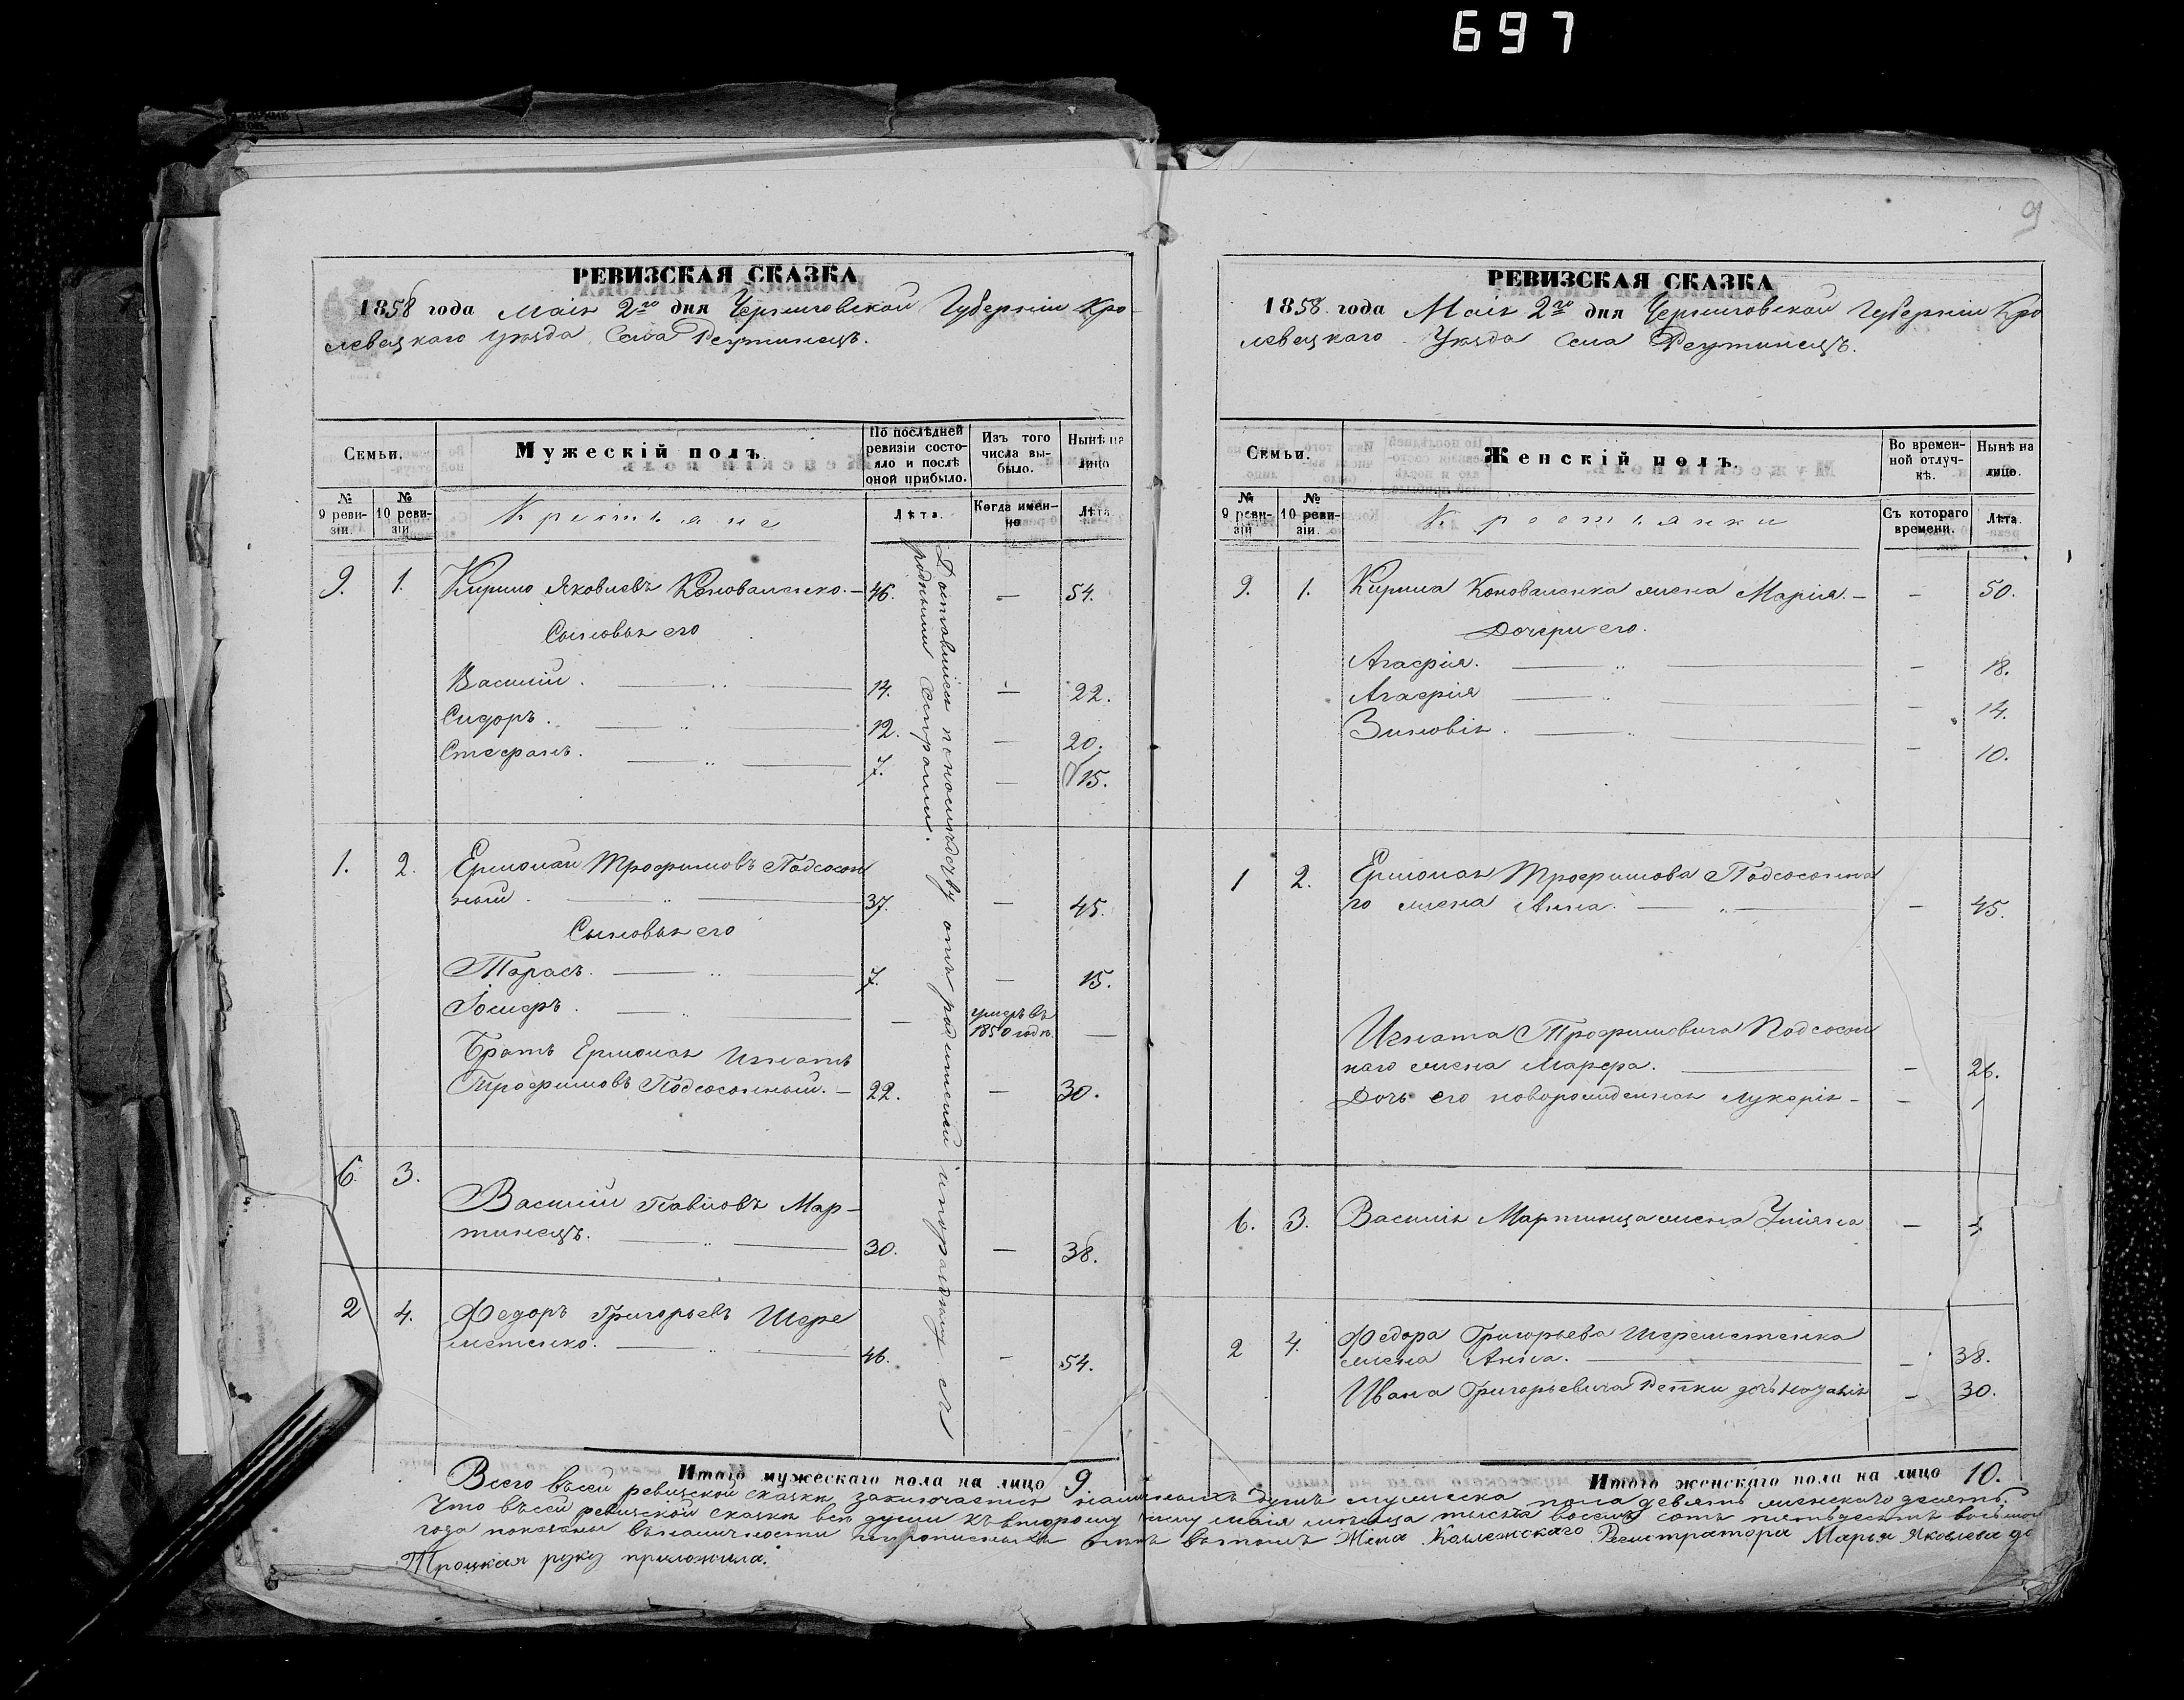 697
9
РЕВИЗСКАЯ СКАЗКА
1858 года Маія 2го дня Черниговской Губерніи Кро-
левецкаго уѣзда Села Реутинецъ.
Семьи.
Мужескій полъ.
По послѣдней ревизіи состояло и послѣ оной прибыло.
Изъ того числа выбыло.
Нынѣ на лицо
№ 9 ревизіи.
№ 10 ревизіи.
Крестьяне
Лѣта.
Когда именно
Лѣта
9. 1. Кирило Яковлевъ Коноваленко. — 46. — 54.
Сыновья его
Василій. — 14. — 22.
Сидоръ. — 12. — 20.
Стефанъ. — 7. — 15.
1. 2. Ермолай Трофимовъ Подсосон
ный — 37. — 45.
Сыновья его
Тарасъ. — 7. — 15.
Іосифъ. — умеръ въ 1850 годѣ. —
Братъ Ермолая Игнатъ
Трофимовъ Подсосонный. — 22. — 30.
6. 3. Василій Павловъ Мар-
тинецъ. — 30. — 38.
2 4. Федоръ Григорьевъ Шере
метенко. — 46. — 54.
Доставшіеся по наслѣдству отъ родителей и по раздѣлу съ
родными сестрами.
Итого мужескаго пола на лицо 9.
РЕВИЗСКАЯ СКАЗКА
1858 года Маія 2го дня Черниговской Губерніи Кро
левецкаго Уѣзда Села Реутинецъ.
Семьи.
Женскій полъ.
Во временной отлучкѣ.
Нынѣ на лицо.
№ 9 ревизіи
№ 10 ревизіи.
Крестьянки
Съ котораго времени.
Лѣта.
9. 1. Кирила Коноваленка жена Марія. — — 50.
Дочери его.
Агафія. — — 18.
Агафія — — 14.
Зиновія. — — 10.
1 2. Ермолая Трофимова Подсосонна
го жена Анна. — — 45.
Игната Трофимовича Подсосон
наго жена Марфа. — — 26.
Дочь его новорожденная Лукерія — — 1
6. 3. Василія Мартинца жена Уліяна —
2 4. Федора Григорьева Шереметенка
жена Анна. — — 38.
Ивана Григорьевича Репки дочь Наталія — 30.
Итого женскаго пола на лицо 10.
Всего въ сей ревизской сказкѣ заключается наличныхъ душъ мужеска пола девять женскаго десять.
Что въ сей ревизской сказкѣ всѣ души къ второму числу маія мѣсяца тысяча восемь сотъ пятьдесятъ восьмаго
года показаны въ наличности и прописныхъ нѣтъ въ томъ Жена Колежскаго Регистратора Марья Яковлева до
Троцкая руку приложила.